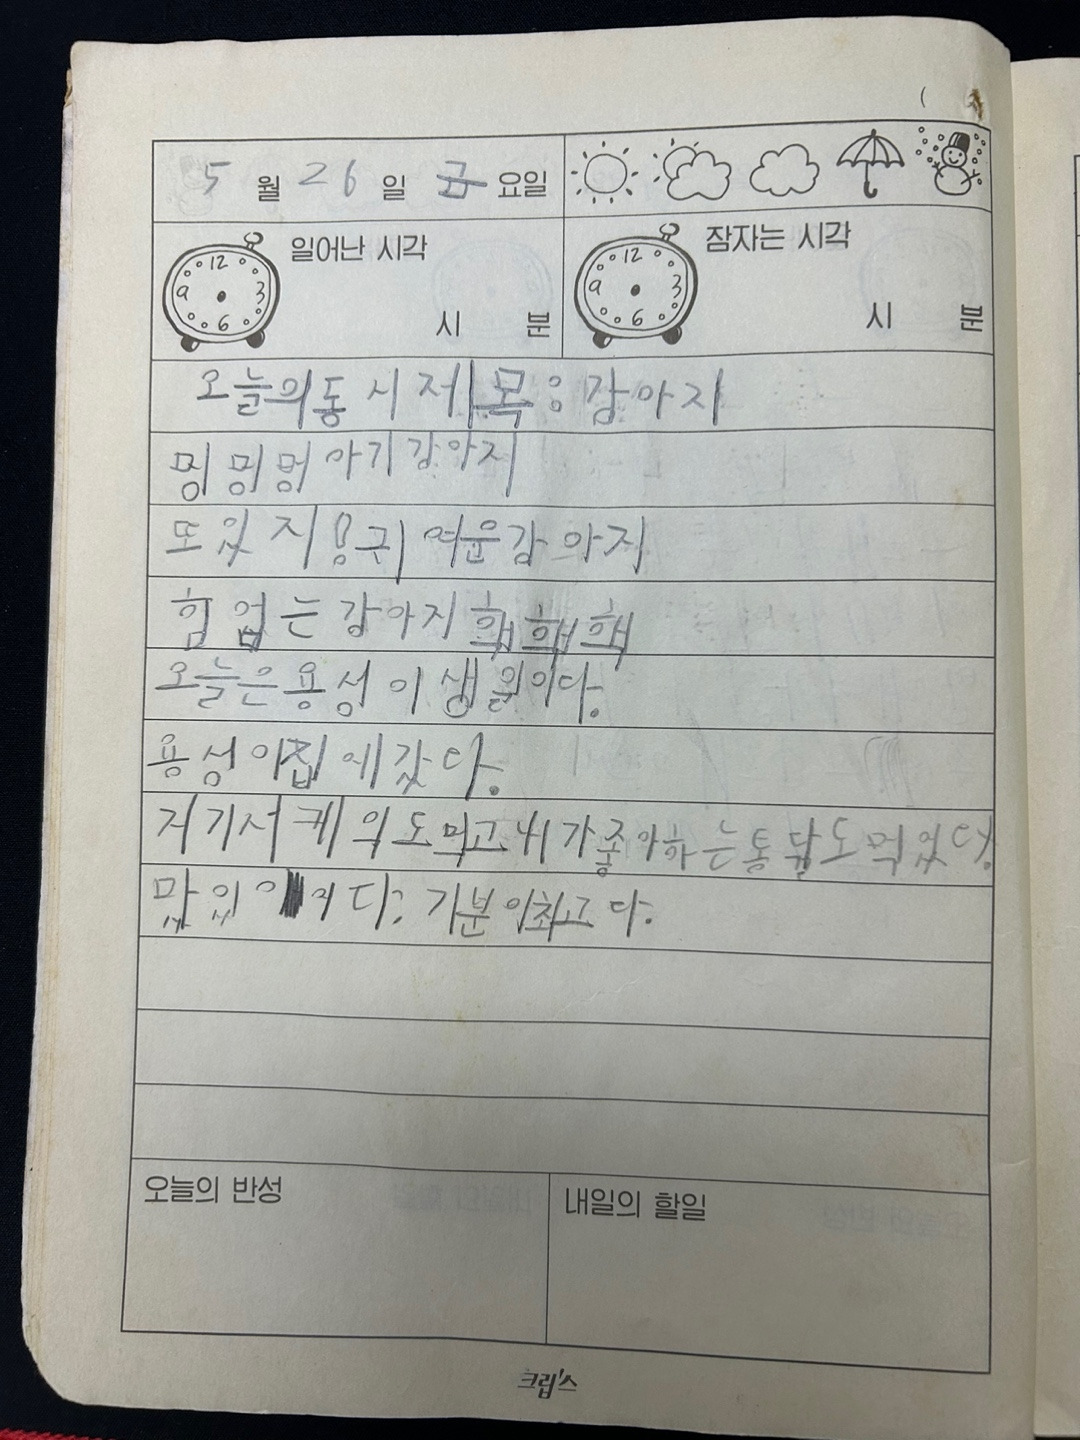 5 월 26 일 금 요일
일어난 시각
12 3 6 9
시 분
잠자는 시각
12 3 6 9
시 분
오늘의동시 제목: 강아지
멍멍멍 아기강아지
힘 업는 강아지 핵핵핵
오늘은용성이생일이다.
용성이집에갔다.
저기서 케익도먹고 내가좋아하는통닭도먹았다.
기분이최고다.
오늘의 반성
내일의 할일
크립스